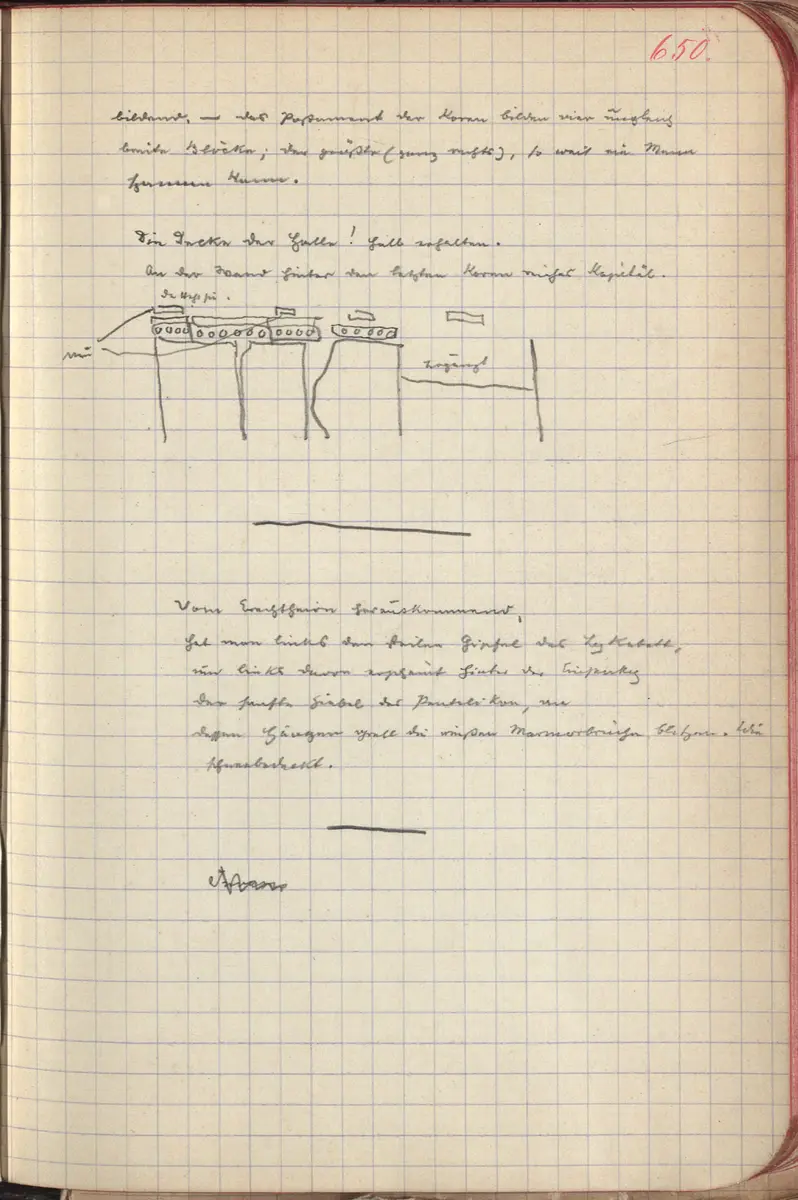 650.
bildend. — das Postament der Koren bilden vier ungleich
breite Blöcke; der größte (ganz rechts), so weit ein Mann
spannen kann.
Die Decke der Halle! halb erhalten.
An der Wand hinter den letzten Koren rechts Kapitäl.
neu
ergänzt
Vom Erechtheion herauskommend,
hat man links den steilen Gipfel des Lykabett,
und links davon erscheint hinter der
der sanfte Giebel des Pentelikon, an
dessen Hängen grell die weißen Marmorbrüche blitzen. Wie
schneebedeckt.